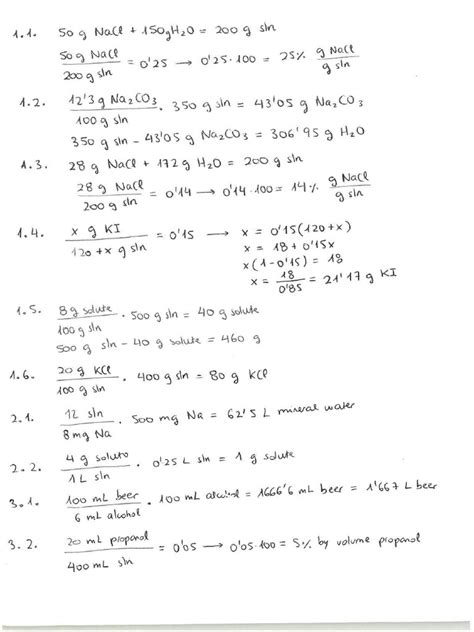 1.1. 50 g NaCl + 150 g H2O = 200 g sln
50 g NaCl / 200 g sln = 0'25 → 0'25·100 = 25% g NaCl / g sln
1.2. 12'3 g Na2CO3 / 100 g sln · 350 g sln = 43'05 g Na2CO3
350 g sln - 43'05 g Na2CO3 = 306'95 g H2O
1.3. 28 g NaCl + 172 g H2O = 200 g sln
28 g NaCl / 200 g sln = 0'14 → 0'14·100 = 14% g NaCl / g sln
1.4. x g KI / 120+x g sln = 0'15 → x = 0'15(120+x)
x = 18 + 0'15x
x(1-0'15) = 18
x = 18 / 0'85 = 21'17 g KI
1.5. 8 g solute / 100 g sln · 500 g sln = 40 g solute
500 g sln - 40 g solute = 460 g
1.6. 20 g KCl / 100 g sln · 400 g sln = 80 g KCl
2.1. sln / 8 mg Na · 500 mg Na = 62'5 L mineral water
2.2. 4 g soluto / 1 L sln · 0'25 L sln = 1 g solute
3.1. 100 mL beer / 6 mL alcohol · 100 mL alcohol = 1666'6 mL beer = 1'667 L beer
3.2. 20 mL propanol / 400 mL sln = 0'05 → 0'05·100 = 5% by volume propanol